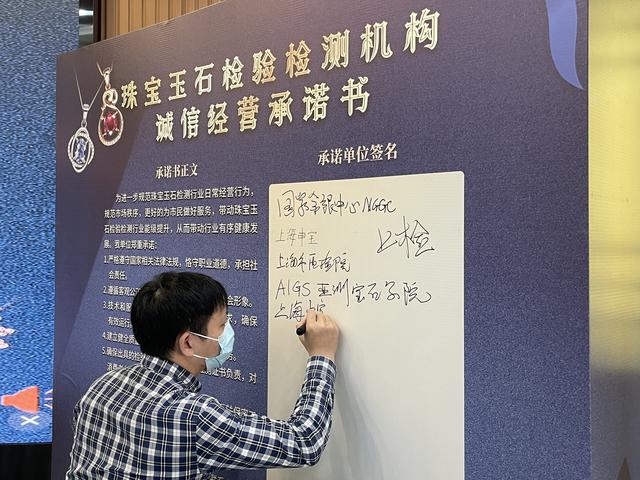 珠宝玉石检验检测机构
诚信经营承诺书
承诺书正文
为进一步规范珠宝玉石检测行业日常经营行为，
规范市场秩序，更好的为市民做好服务，带动珠宝玉
石检验检测行业能级提升，从而带动行业有序健康发
展。我单位郑重承诺：
1.严格遵守国家相关法律法规，恪守职业道德，承担社
会责任。
2.遵循客观公
会形象。
3.技术和服
确保
有效运行
4.建立健全质
5.确保出具的检
证书负责，对
消费
承诺单位签名
国家金银中心NGGC
上海申宝
上检
上海市质检院
AIGS 亚洲宝石学院
上海